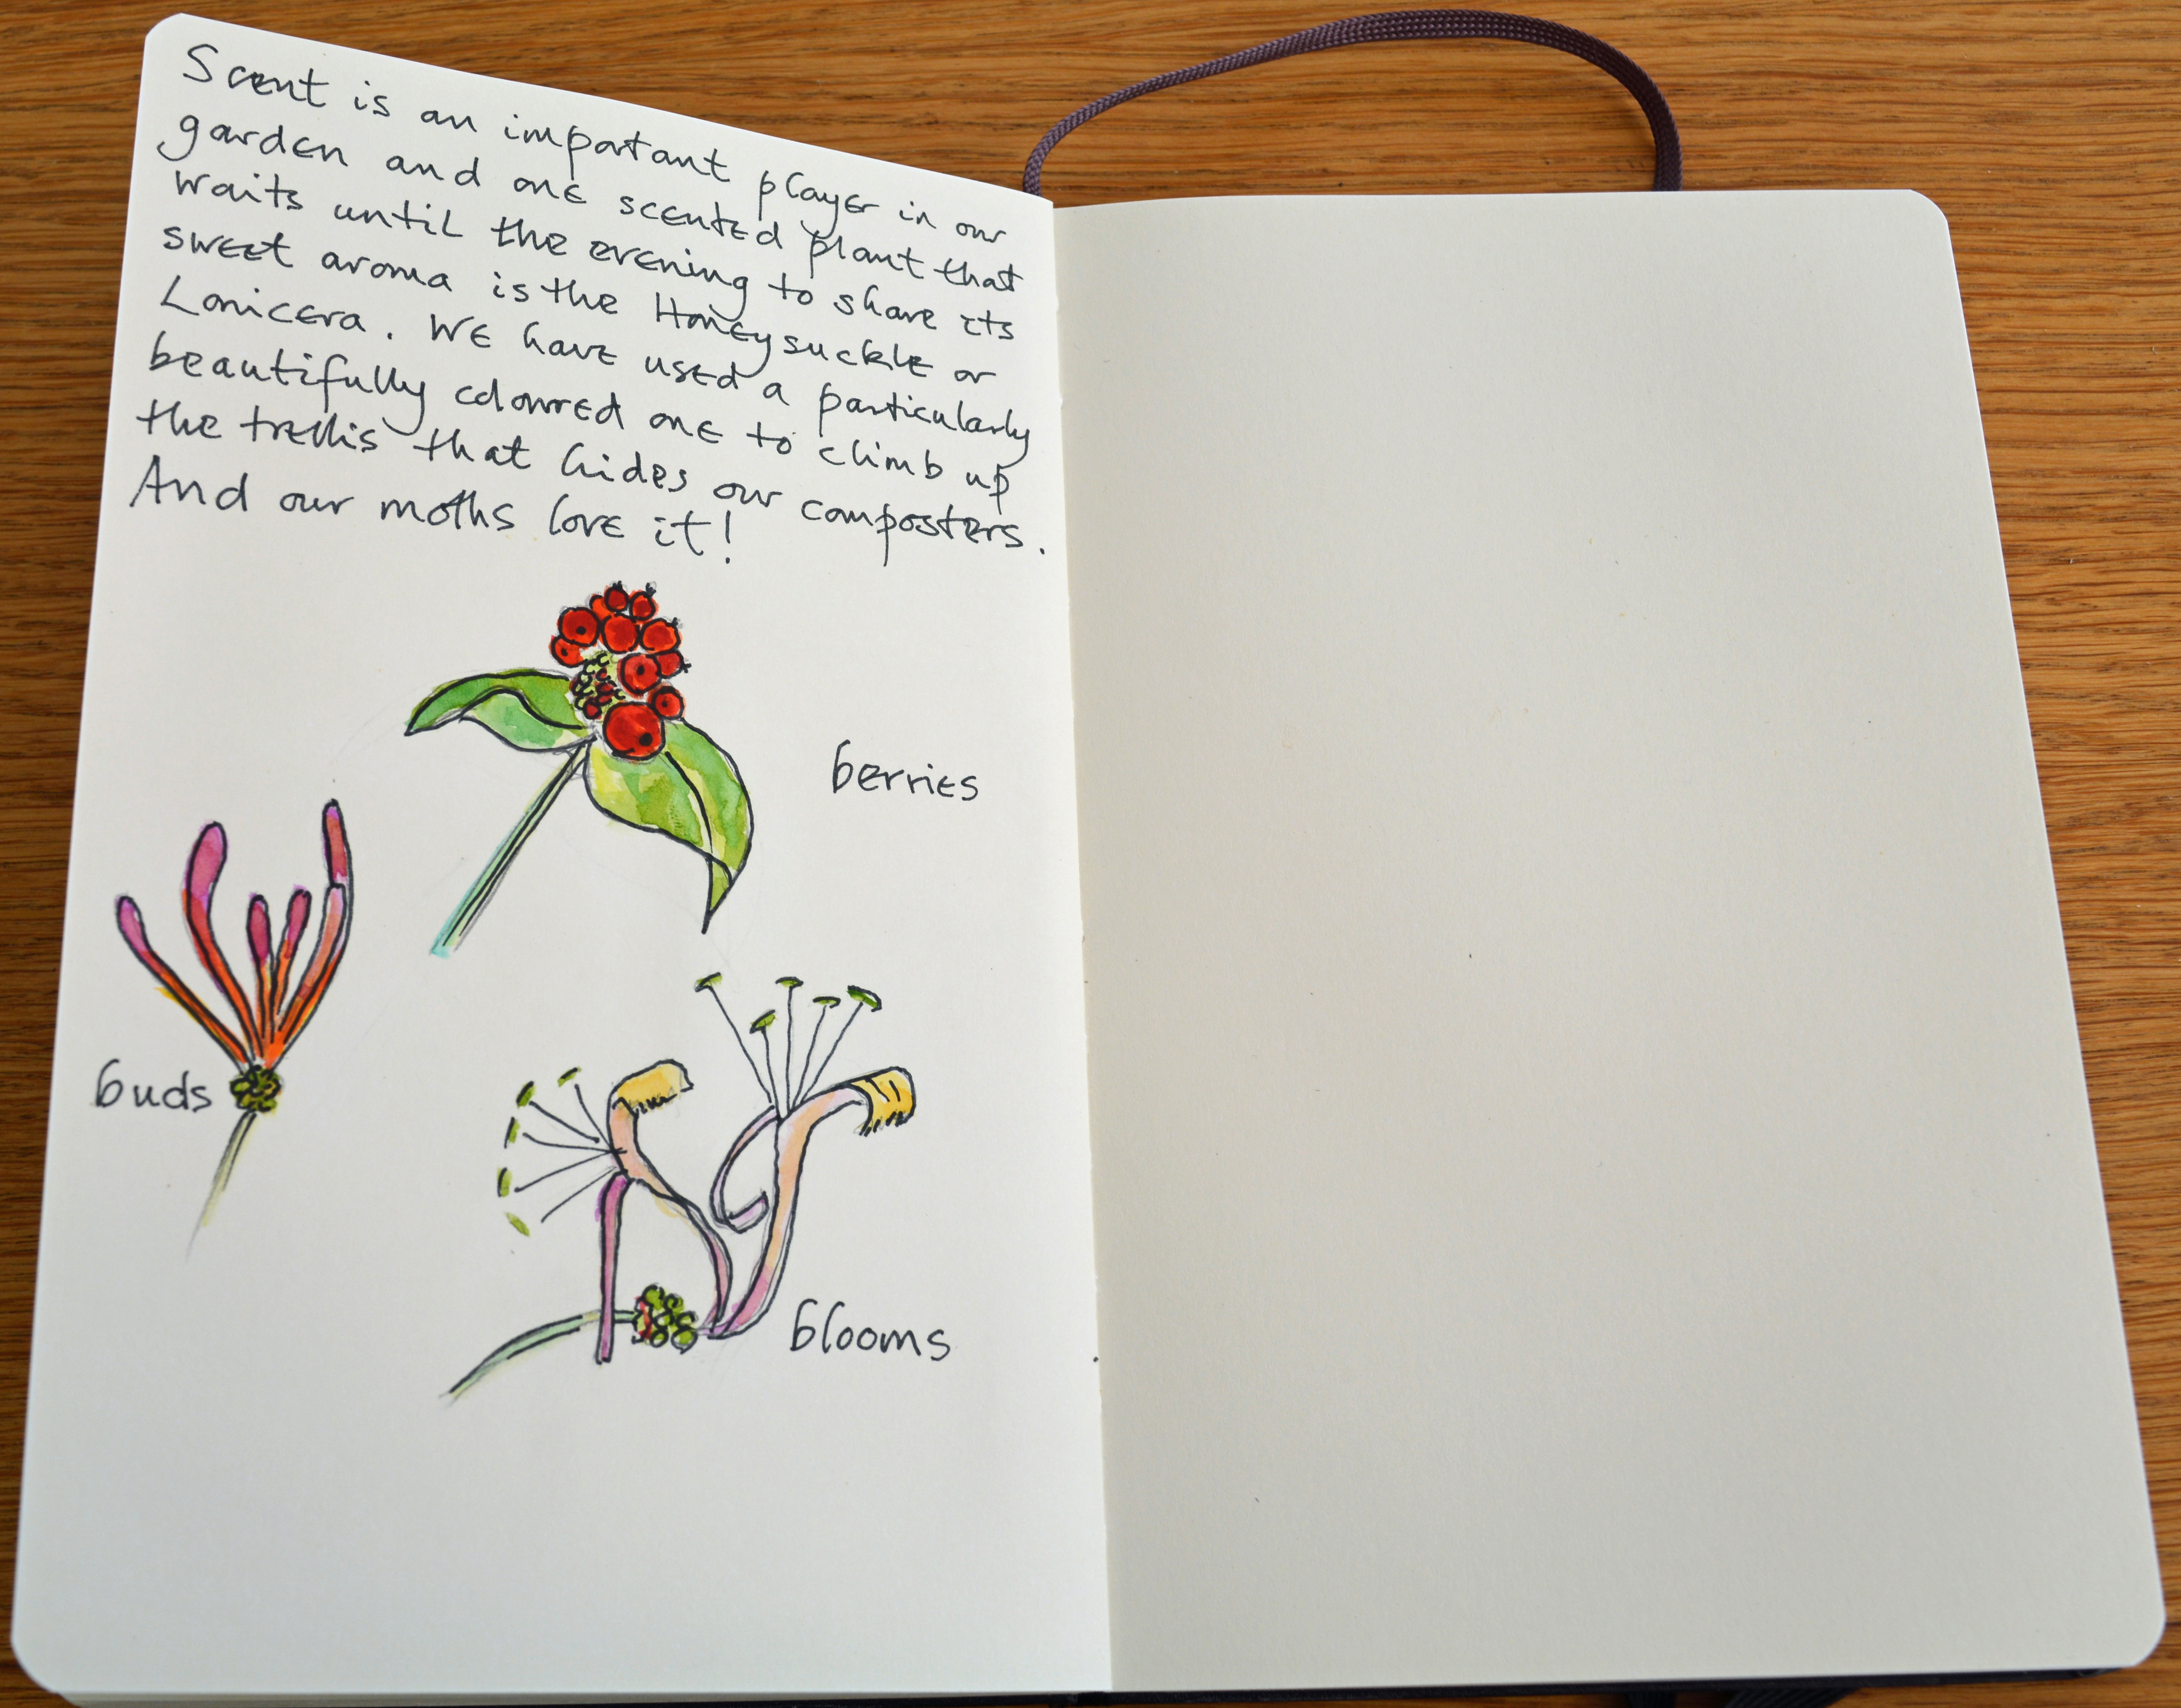 Scent is an important player in our
garden and one scented plant that
waits until the evening to share its
sweet aroma is the Honeysuckle or
Lonicera. We have used a particularly
beautifully coloured one to climb up
the trellis that hides our composters.
And our moths love it!
berries
buds
blooms